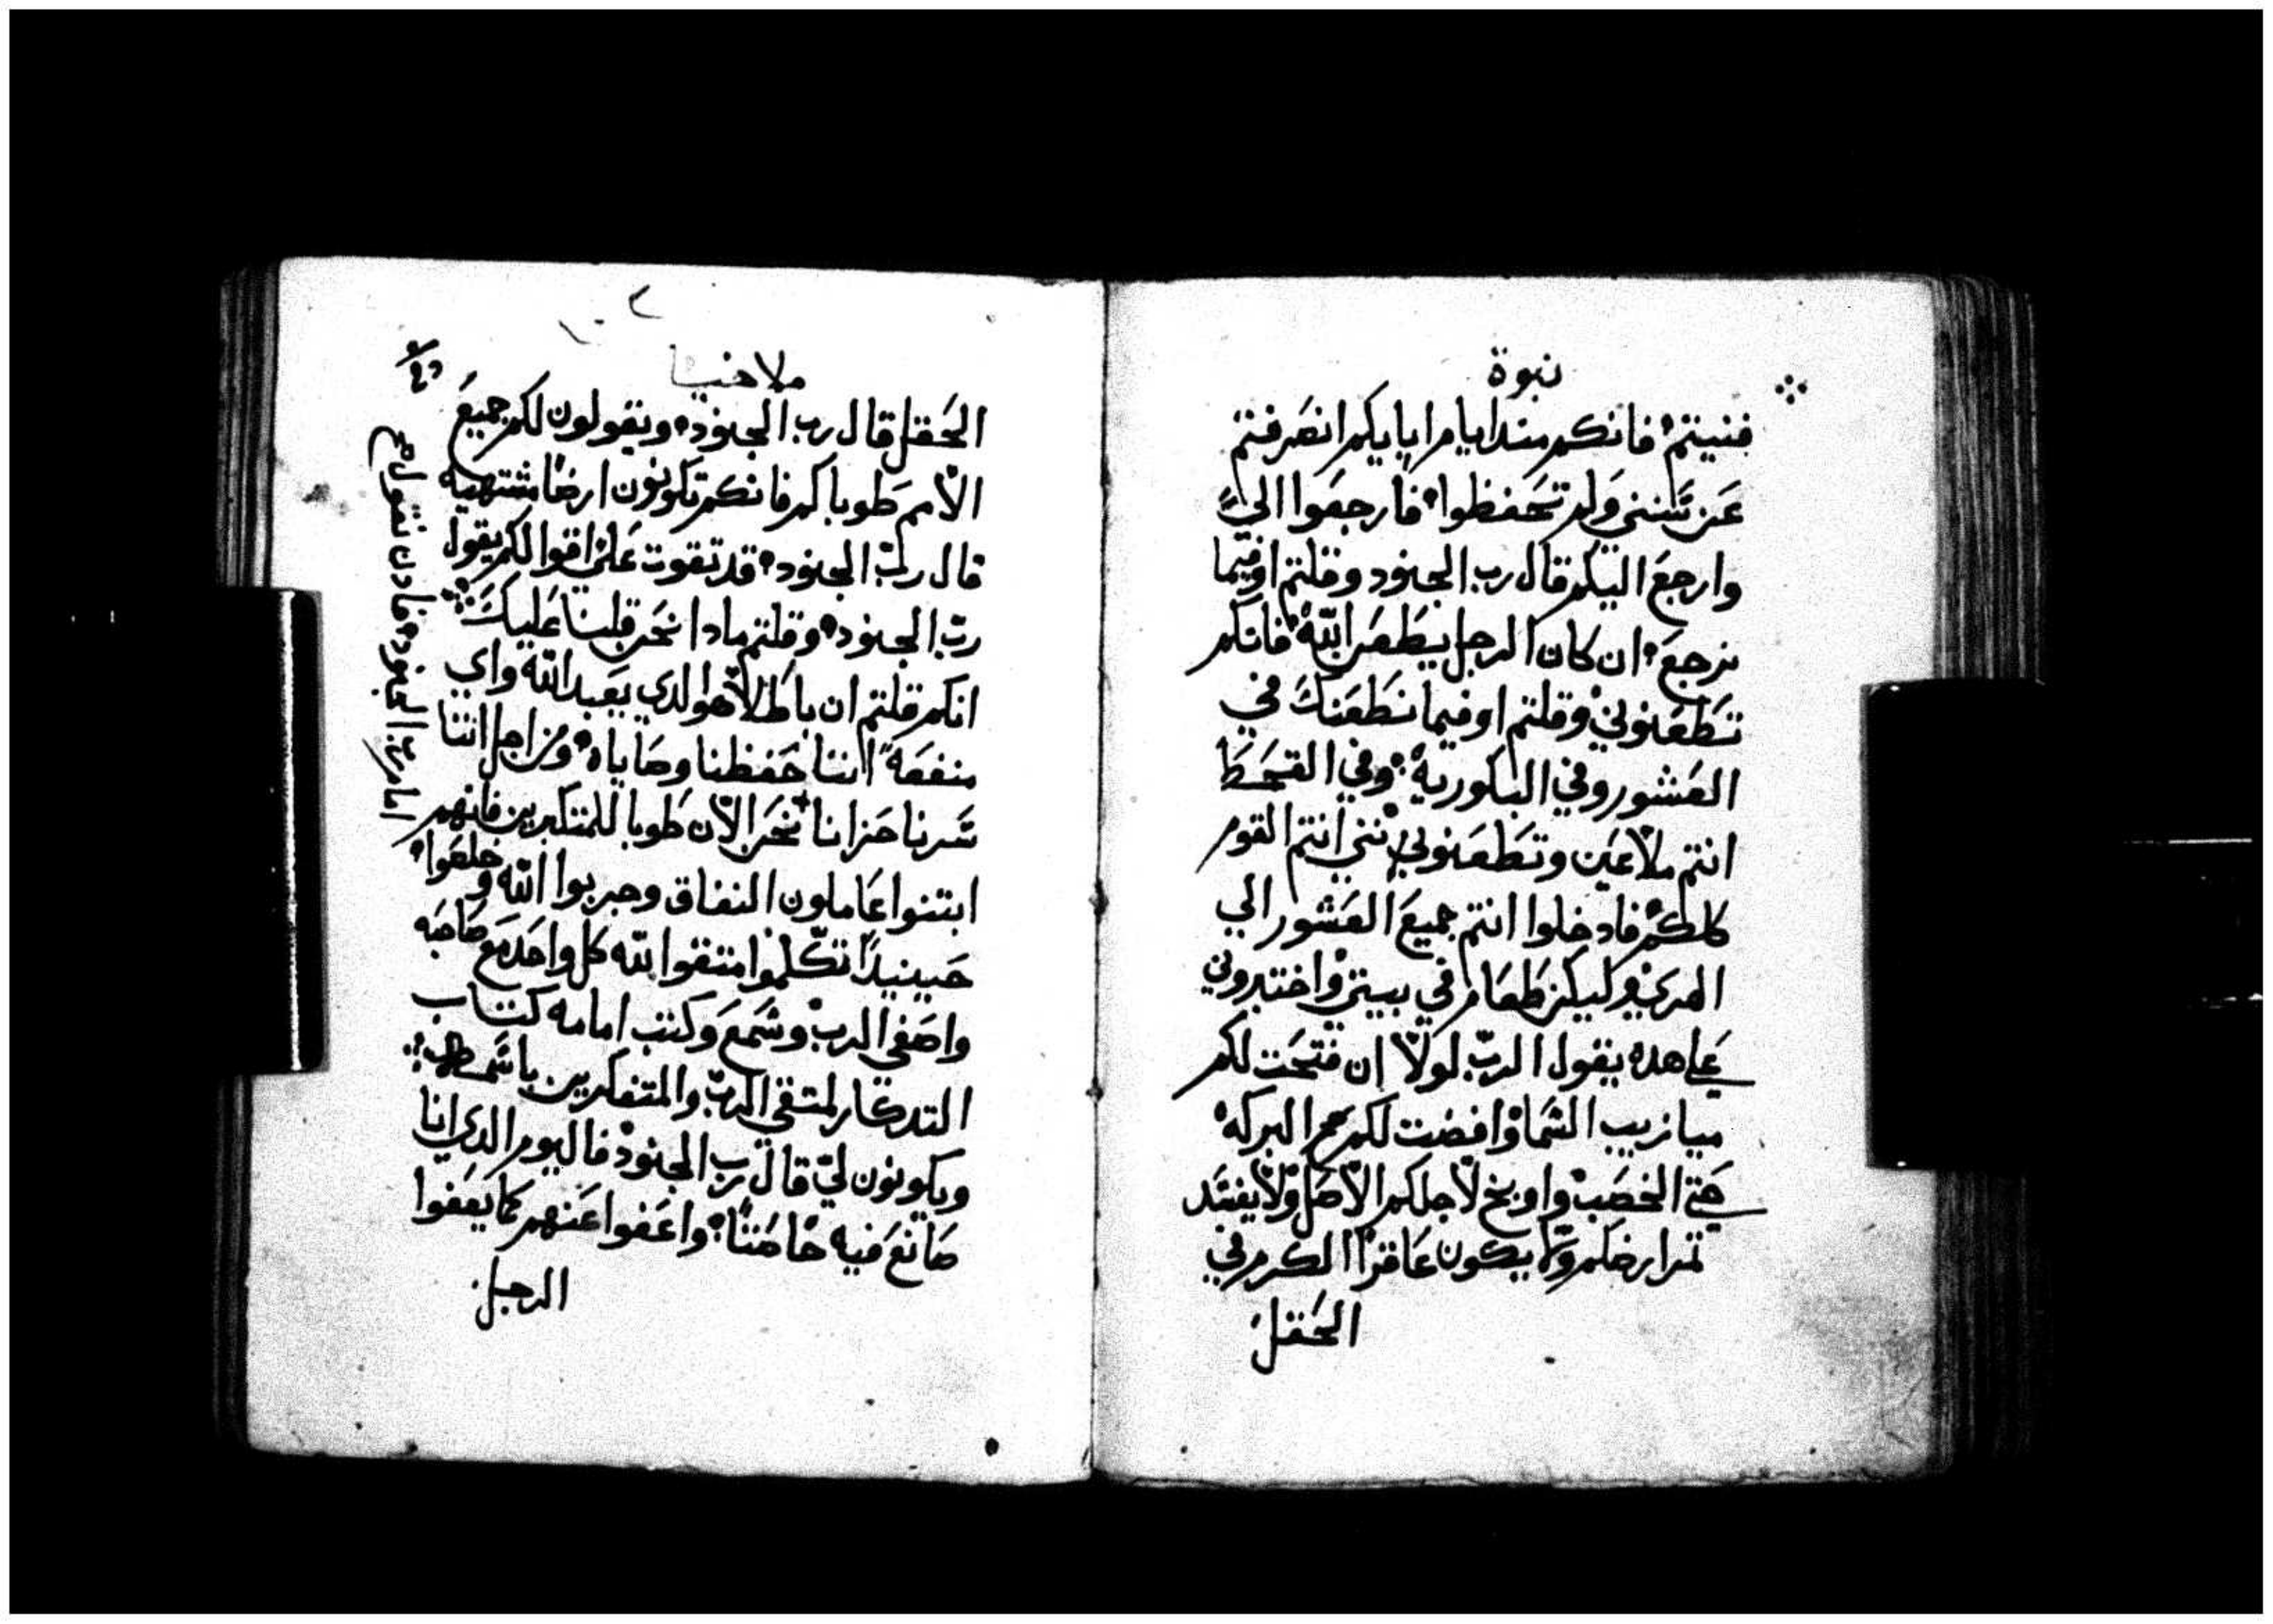 نبوة
فنيتم فانكم مندايام ابايكم انصرفتم
عن سنني ولم تحفظوا فارجعوا الي
وارجع اليكم قال رب الجنود وقلتم اوفيما
نرجع ان كان الرجل يطعن الله فانكم
تطعنوني وقلتم اوفيما نطعنك في
العشور وفي الباكورية وفي القحط
انتم ملاعين وتطعنوني انتم القوم
كلكم فادخلوا انتم جميع العشور الي
الهري وليكن طعام في بيتي واختبروني
علي هده يقول الرب لولا ان فتحت لكم
ميازيب السما وافضت لكم البركه
حتي الخصب واوبخ لاجلكم الاصل ولا يفسد
تمرارضكم ولا يكون عاقرا الكرم في
الحقل
ملاخيا
الحقل قال رب الجنود ويقولون لكم جميع
الامم طوباكم فانكم تكونون ارضا مشتهيه
قال رب الجنود قد تقوت علي اقوالكم يقول
رب الجنود وقلتم مادا نحن قلينا عليك
انكم قلتم ان باطلا هو الدي يعبد الله واي
منفعة اننا حفظنا وصاياه ومن اجل اننا
سرنا حزانا نحن الان طوبا للمتكبرين فانهم
ابتنوا عاملون النفاق وجربوا الله وخلصوا
حينيدا تكلموا متقوا الله كل واحد مع صاحبه
واصغي الرب وسمع وكتب امامه كتاب
التدكار لمتقي الرب والمتفكرين باسمه
ويكونون لي قال رب الجنود فاليوم الدي انا
صانع فيه خاصتا واعفوا عنهم كما يعفوا
الرجل